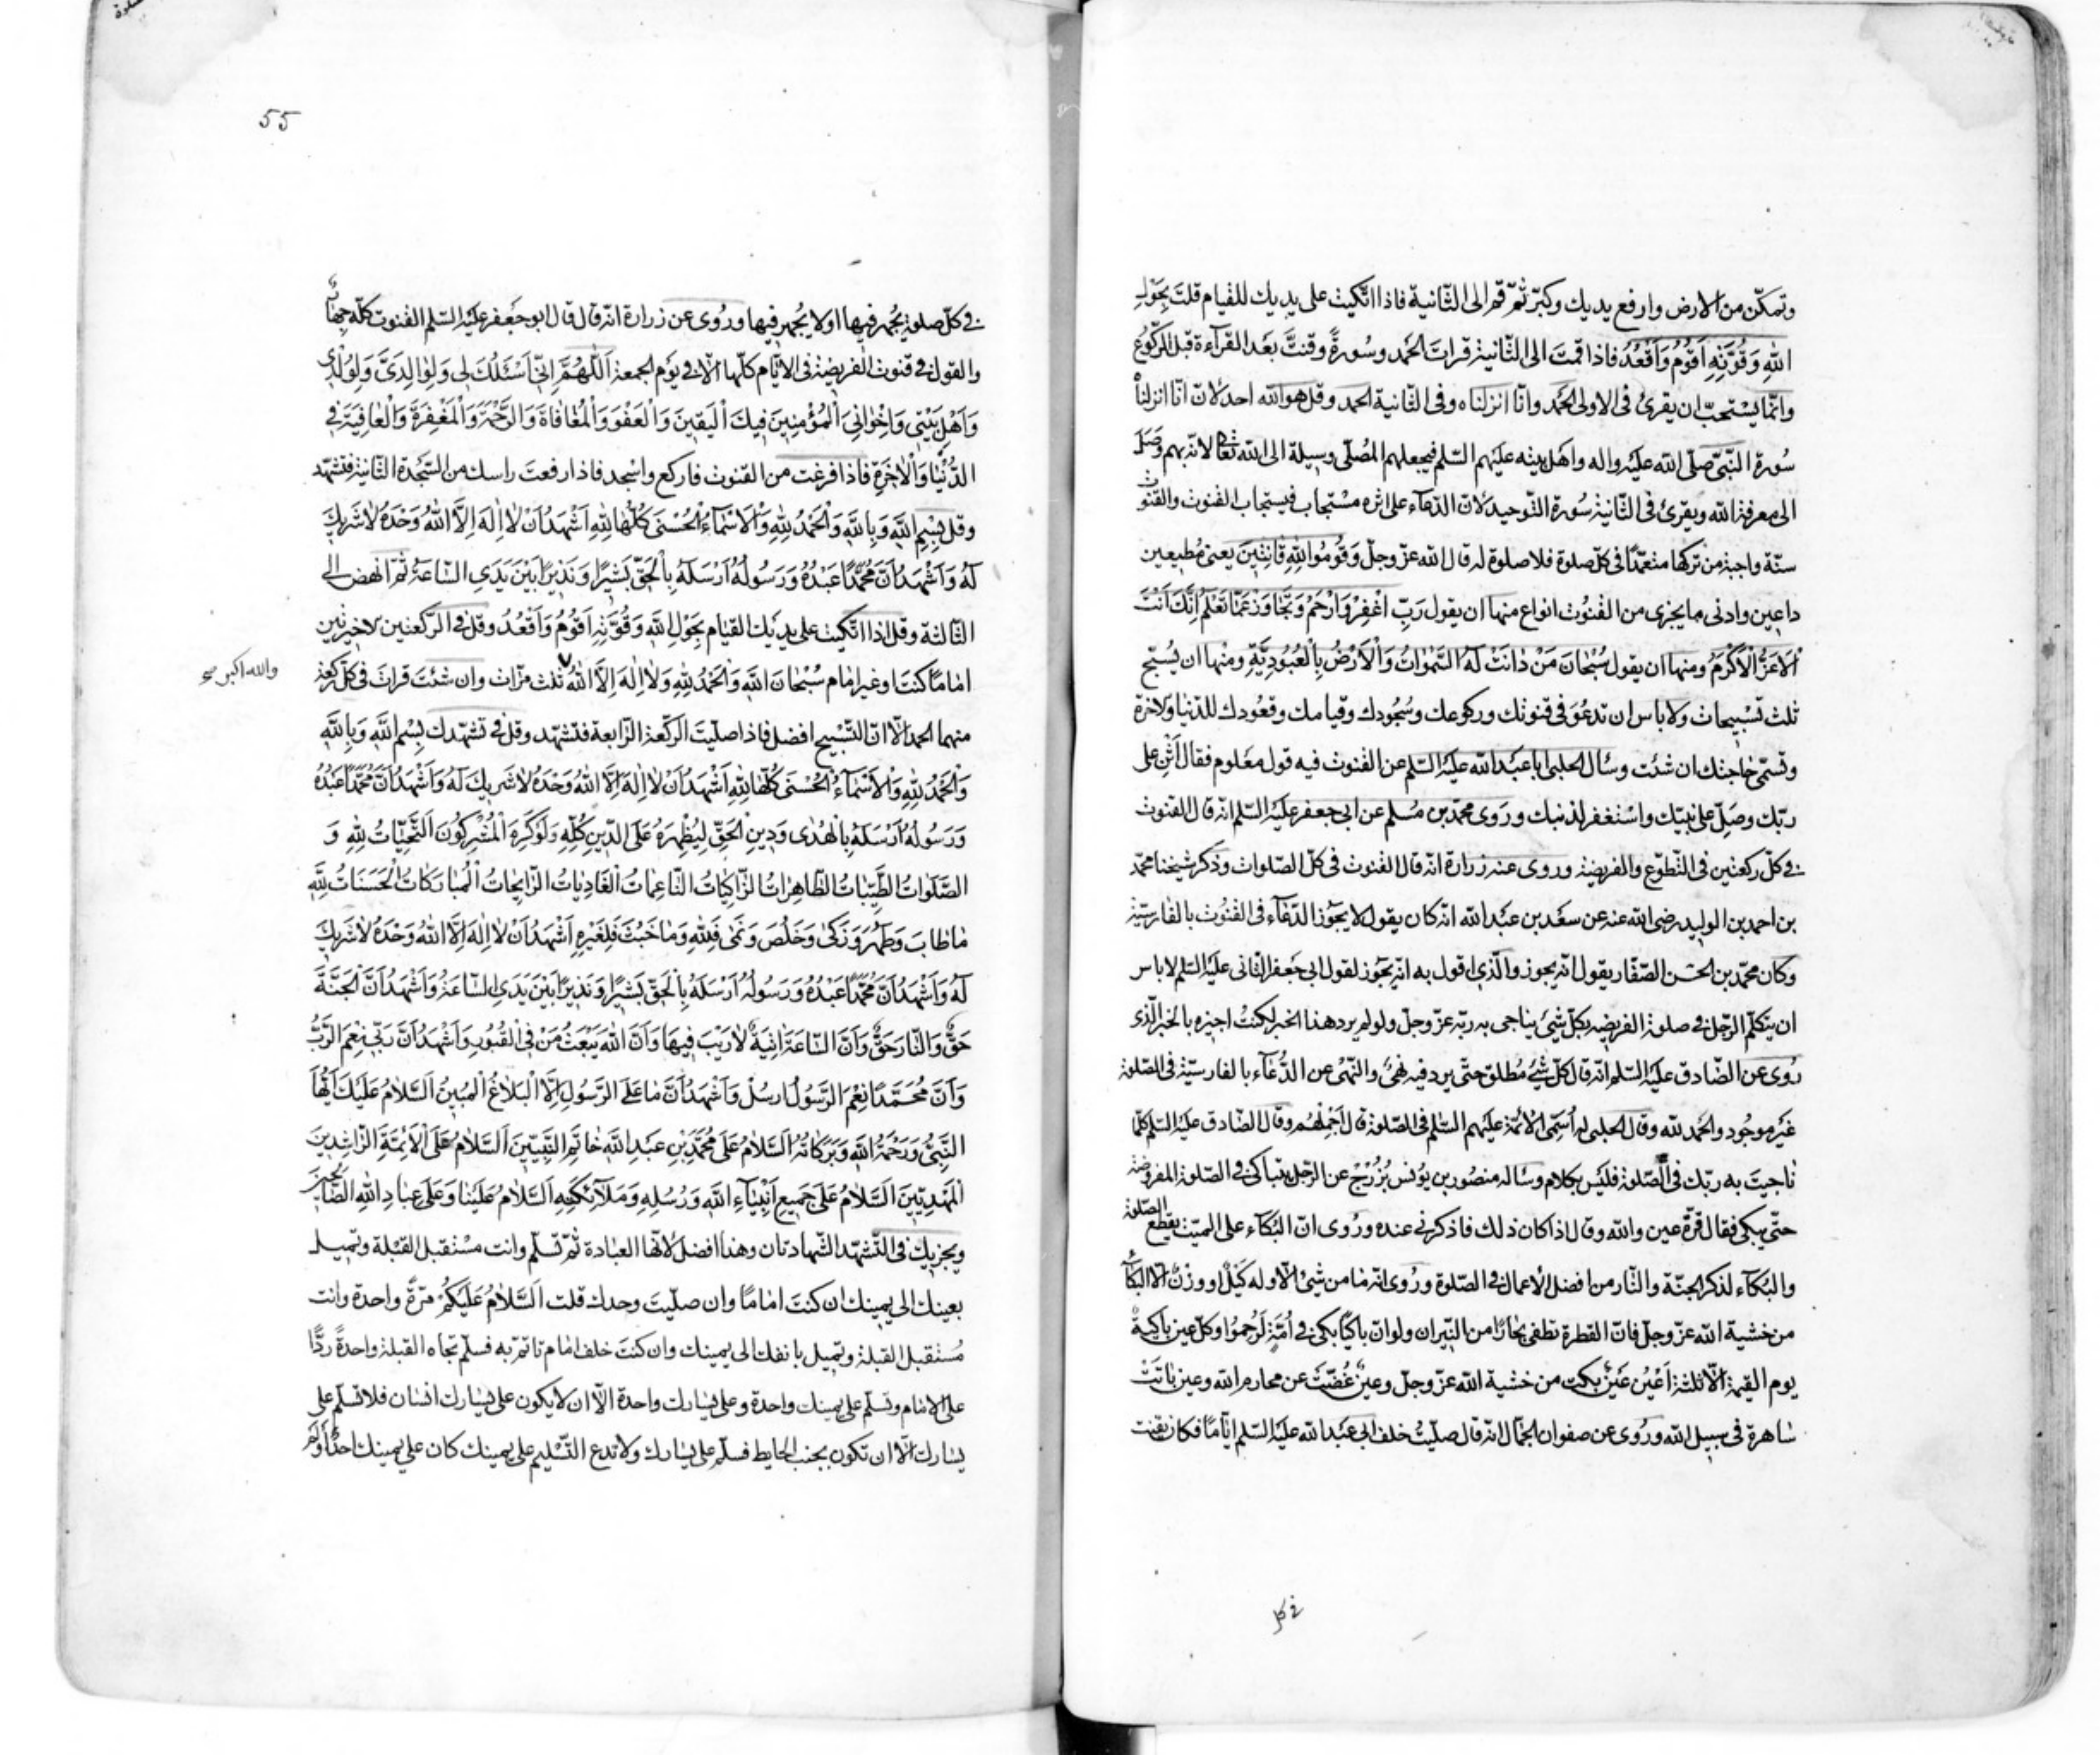 وتمكّن من الارض وارفع يديك وكبّر ثمّ قم الى الثّانية فاذا اتّكيت على يديك للقيام قلتَ بِحَوْلِ
اللهِ وَقُوَّتِهِ اَقُومُ وَاَقْعُدُ فاذا قمتَ الى الثّانية قراتَ الحَمد وسُورةً وقنتَّ بعَد القرآءة قبل الرّكوُع
وانّما يسْتحبّ ان يقرئ فى الاولى الحَمد وانّا انزلناه وفى الثّانية الحمد وقل هو الله احد لانّ انّا انزلناهُ
سُورة النّبىّ صلّى الله عليْه واله واهَل بيته عليَهم السّلم فيجعلهم المُصلّى وسيلة الى الله تعَالى لانّه بهم وَصَلَ
الى معرفة الله ويقرئ فى الثّانية سُورة التّوحيد لانّ الدّعاء على اثره مسْتجاب فيستجاب القنوت والقنوُت
سنّة واجبة من تركها متعمّدًا فى كلّ صلوة فلا صلوة له قال الله عزّ وجلّ وَقُومُوا لِلّهِ قانِتينَ يعنى مُطيعين
داعين وادنى ما يجزى من القنُوت انواع منها ان يقول رَبِّ اغْفِرْ وَارْحَمْ وَتَجاوَزْ عَمّا تَعْلَمُ اِنَّكَ اَنْتَ
الْاَعَزُّ الْاَكْرَمُ ومنها ان يقول سُبْحانَ مَنْ دانَتْ لَهُ السَّمواتُ وَالْاَرْضُ بِالْعُبُودِيَّةِ ومنها ان يُسبّح
ثلث تسْبيحات ولا باس ان تدعُوَ فى قنوتك وركوعك وسُجُودك وقيامك وقعُودك للدّنيا والاخرة
وتسمّى حاجتك ان شئت وسأل الحلبى ابا عبَد الله عليَْه السّلم عن القنوت فيه قول معَلوم فقال اَثْنِ على
ربّك وصَلِّ على نبيّك واسْتغفر لذنبك ورَوى محمّد بن مُسلم عن ابى جعفر عليَه السّلم انه قال القنوت
فى كلّ ركعتين فى التّطوّع والفريضة وروى عنه زرارة انه قال القنوت فى كلّ الصّلوات وذكر شيخنا محمّد
بن احمد بن الوليد رضى الله عنه عن سعَد بن عبَد الله انّه كان يقول لا يجوُز الدّعاء فى القنوُت بالفارسيّة
وكان محمّد بن الحسَن الصّفّار يقول انّه يجوز والّذى اقول به انّه يجوَز لقول ابى جَعفر الثّانى عليَه السّلم لا باس
ان يتكلّم الرّجل فى صلوة الفريضة بكلّ شىَ يناجى به ربّه عزّ وجلّ ولو لم يرد هذا الخبر لكنتُ اجيزه بالخبر الّذى
رُوى عن الصّادق عليَه السّلم انّه قال كلّ شئ مُطلق حتّى يرد فيه نهىٌ والنّهىُ عن الدُّعآء بالفارسيّة فى الصّلوة
غيَر موجُود والحَمد لله وقال الحلبى له اُسَمّى الائمّة عليَهم السّلم فى الصّلوة قال اَجْمِلْهُم وقال الصّادق عليَه السّلم كلّما
ناجيتَ به ربّك فى الصّلوة فليَس بكلام وسأله منصُور بن يوُنس بُزُرْج عن الرّجل يتباكى فى الصّلوة المفروضة
حتّى يبكى فقال قرّة عين والله وقال اذا كان ذلك فاذكرنى عنده ورُوى انّ البُكآء على الميّت يقطع الصّلوة
والبُكآء لذكر الجنّة والنّار من افضل الاعمال فى الصّلوة ورُوى انّه ما من شئ الّا وله كَيْلٌ او وزنٌ الّا البُكآءُ
من خشية الله عزّ وجلّ فانّ القطرة تطفى بحارًا من النّيران ولو انّ باكيًا بكى فى اُمّةٍ لَرُحِمُوا وكلّ عين باكيةٌ
يوم القيمة الّا ثلثة اَعْيُن عَيْنٌ بكت من خشية الله عزّ وجلّ وعينٌ غُضّتْ عن محارم الله وعين باتَتْ
ساهرة فى سبيل الله ورُوى عن صفوان الجمّال انّه قال صلّيتُ خلف ابى عبَد الله عليَه السّلم ايّامًا فكان يقنت
فى كل
55
فى كلّ صلوة يجُهر فيها او لا يجُهر فيها ورُوى عن زرارة انّه قال قال ابو جعَفر عليَه السّلم القنوت كلّه جهارٌ
والقول فى قنوت الفريضة فى الايّام كلّها الّا فى يوَم الجمعة اَللّهُمَّ اِنّى اَسْئَلُكَ لى وَلِوالِدَىَّ وَلِوُلْدى
وَاَهْلِ بَيْتى وَاِخْوانِى الْمُؤْمِنينَ فيكَ الْيَقينَ وَالْعَفْوَ وَالْمُعافاةَ وَالرَّحْمَةَ وَالْمَغْفِرَةَ وَالْعافِيَةَ فِى
الدُّنْيا وَالْاخِرَةِ فاذا فرغت من القنوت فاركع واسْجد فاذا رفعتَ راسك من السّجَدة الثّانية فتشهّد
وقل بِسْمِ اللهِ وَبِاللهِ وَالْحَمْدُ لِلّهِ وَالْاَسْماءُ الْحُسْنى كُلُّها لِلّهِ اَشْهَدُ اَنْ لا اِلهَ اِلَّا اللهُ وَحْدَهُ لا شَريكَ
لَهُ وَاَشْهَدُ اَنَّ مُحَمَّدًا عَبْدُهُ وَرَسُولُهُ اَرْسَلَهُ بِالْحَقِّ بَشيرًا وَنَذيرًا بَيْنَ يَدَىِ السّاعَةِ ثمّ انهض الى
الثّالثة وقل اذا اتّكيت على يديَك للقيام بِحَوْلِ اللهِ وَقُوَّتِهِ اَقُومُ وَاَقْعُدُ وقل فى الرّكعتين الاخيرتين
امامًا كنتَ او غير امام سُبْحانَ اللهِ وَالْحَمْدُ لِلّهِ وَلا اِلهَ اِلَّا اللهُ ثلث مرّات وان شئتَ قراتَ فى كلّ ركعة
والله اكبر صح
منهما الحمد الّا انّ التّسْبيح افضل فاذا صليّتَ الرّكعَة الرّابعة فتشهّد وقل فى تشهّدك بِسْمِ اللهِ وَبِاللهِ
وَالْحَمْدُ لِلّهِ وَالْاَسْمآءُ الْحُسْنى كُلُّها لِلّهِ اَشْهَدُ اَنْ لا اِلهَ اِلَّا اللهُ وَحْدَهُ لا شَريكَ لَهُ وَاَشْهَدُ اَنَّ مُحَمَّدًا عَبْدُهُ
وَرَسُولُهُ اَرْسَلَهُ بِالْهُدى وَدينِ الْحَقِّ لِيُظْهِرَهُ عَلَى الدّينِ كُلِّهِ وَلَوْ كَرِهَ الْمُشْرِكُونَ اَلتَّحِيّاتُ لِلّهِ وَ
الصَّلَواتُ الطَّيِّباتُ الطّاهِراتُ الزّاكِياتُ النّاعِماتُ الْغادِياتُ الرّايِحاتُ الْمُبارَكاتُ الْحَسَناتُ لِلّهِ
ما طابَ وَطَهُرَ وَزَكى وَخَلُصَ وَنَمى فَلِلّهِ وَما خَبُثَ فَلِغَيْرِهِ اَشْهَدُ اَنْ لا اِلهَ اِلَّا اللهُ وَحْدَهُ لا شَريكَ
لَهُ وَاَشْهَدُ اَنَّ مُحَمَّدًا عَبْدُهُ وَرَسُولُهُ اَرْسَلَهُ بِالْحَقِّ بَشيرًا وَنَذيرًا بَيْنَ يَدَىِ السّاعَةِ وَاَشْهَدُ اَنَّ الْجَنَّةَ
حَقٌّ وَالنّارَ حَقٌّ وَاَنَّ السّاعَةَ اتِيَةٌ لا رَيْبَ فيها وَاَنَّ اللهَ يَبْعَثُ مَنْ فِى الْقُبُورِ وَاَشْهَدُ اَنَّ رَبّى نِعْمَ الرَّبُّ
وَاَنَّ مُحَمَّدًا نِعْمَ الرَّسُولُ اُرْسِلَ وَاَشْهَدُ اَنَّ ما عَلَى الرَّسُولِ اِلَّا الْبَلاغُ الْمُبينُ اَلسَّلامُ عَلَيْكَ اَيُّهَا
النَّبِىُّ وَرَحْمَةُ اللهِ وَبَرَكاتُهُ اَلسَّلامُ عَلى مُحَمَّدِ بْنِ عَبْدِ اللهِ خاتَمِ النَّبِيّينَ اَلسَّلامُ عَلَى الْاَئِمَّةِ الرّاشِدينَ
الْمَهْدِيّينَ اَلسَّلامُ عَلى جَميعِ اَنْبِياءِ اللهِ وَرُسُلِهِ وَمَلآئِكَتِهِ اَلسَّلامُ عَلَيْنا وَعَلى عِبادِ اللهِ الصّالِحينَ
ويجزيك فى التّشهّد الشّهادتان وهذا افضل لانّها العبادة ثمّ تسلّم وانت مسْتقبل القبْلة وتميل
بعينك الى يمينك ان كنتَ امامًا وان صلّيتَ وحدك قلت اَلسَّلامُ عَلَيْكُمْ مرّةً واحدة وانت
مُسْتقبل القبلة وتميل بانفك الى يمينك وان كنتَ خلف امام تاتمّ به فسلّم تجاه القبلة واحدةً ردًّا
على الامام وتسلّم على يمينك واحدة وعلى يسارك واحدة الّا ان لا يكون على يسارك انسان فلا تسلّم على
يسارك الّا ان تكون بجنب الحايط فسلّم على يسارك ولا تدع التّسْليم على يمينك كان على يمينك احدٌ اَولم